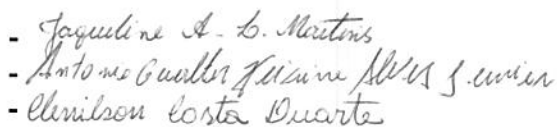 - Jaqueline A. L. Martins
- Antonio Gualter Alves Junior
- Clenilson Costa Duarte